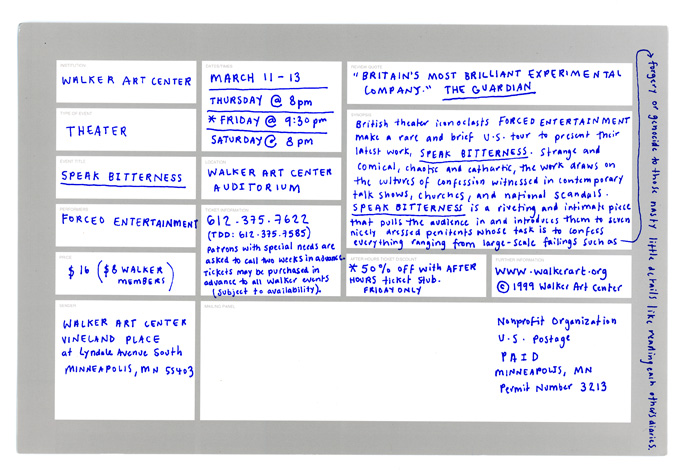 INSTITUTION
WALKER ART CENTER
TYPE OF EVENT
THEATER
EVENT TITLE
SPEAK BITTERNESS
PERFORMERS
FORCED ENTERTAINMENT
PRICE
$16 ($8 WALKER
MEMBERS)
SENDER
WALKER ART CENTER
VINELAND PLACE
at Lyndale Avenue South
MINNEAPOLIS, MN 55403
DATES/TIMES
MARCH 11-13
THURSDAY @ 8pm
*FRIDAY @ 9:30pm
SATURDAY @ 8pm
LOCATION
WALKER ART CENTER
AUDITORIUM
TICKET INFORMATION
612.375.7622
(TDD: 612.375.7585)
Patrons with special needs are
asked to call two weeks in advance.
Tickets may be purchased in
advance to all Walker events
(subject to availability).
REVIEW QUOTE
"BRITAIN'S MOST BRILLIANT EXPERIMENTAL
COMPANY." THE GUARDIAN
SYNOPSIS
British theater iconoclasts FORCED ENTERTAINMENT
make a rare and brief U.S. tour to present their
latest work, SPEAK BITTERNESS. Strange and
comical, chaotic and cathartic, the work draws on
the cultures of confession witnessed in contemporary
talk shows, churches, and national scandals.
SPEAK BITTERNESS is a riveting and intimate piece
that pulls the audience in and introduces them to seven
nicely dressed penitents whose task is to confess
everything ranging from large-scale failings such as
forgery or genocide to those nasty little details like reading each others diaries.
AFTER HOURS TICKET DISCOUNT
* 50% OFF with AFTER
HOURS ticket stub.
FRIDAY ONLY
FURTHER INFORMATION
www.walkerart.org
© 1999 Walker Art Center
MAILING PANEL
Nonprofit Organization
U.S. Postage
PAID
MINNEAPOLIS, MN
Permit Number 3213